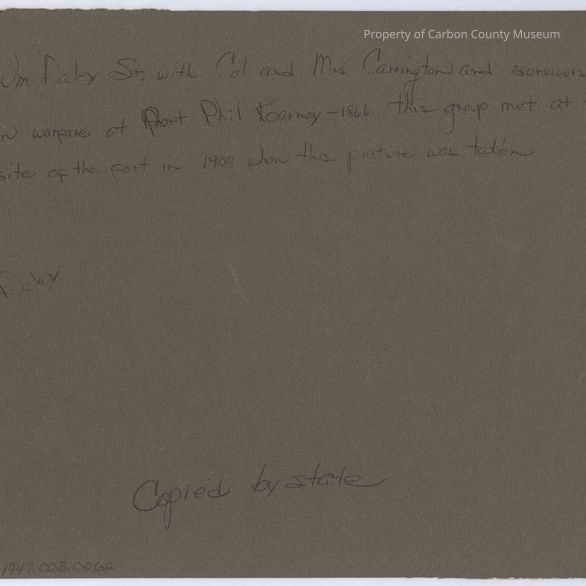 Property of Carbon County Museum
Wm Daley Sr. with Col and Mrs Carrington and survivors
warfare at Fort Phil Kearney - 1866 this group met at
site of the fort in 1908 when this picture was taken
Daley
Copied by state